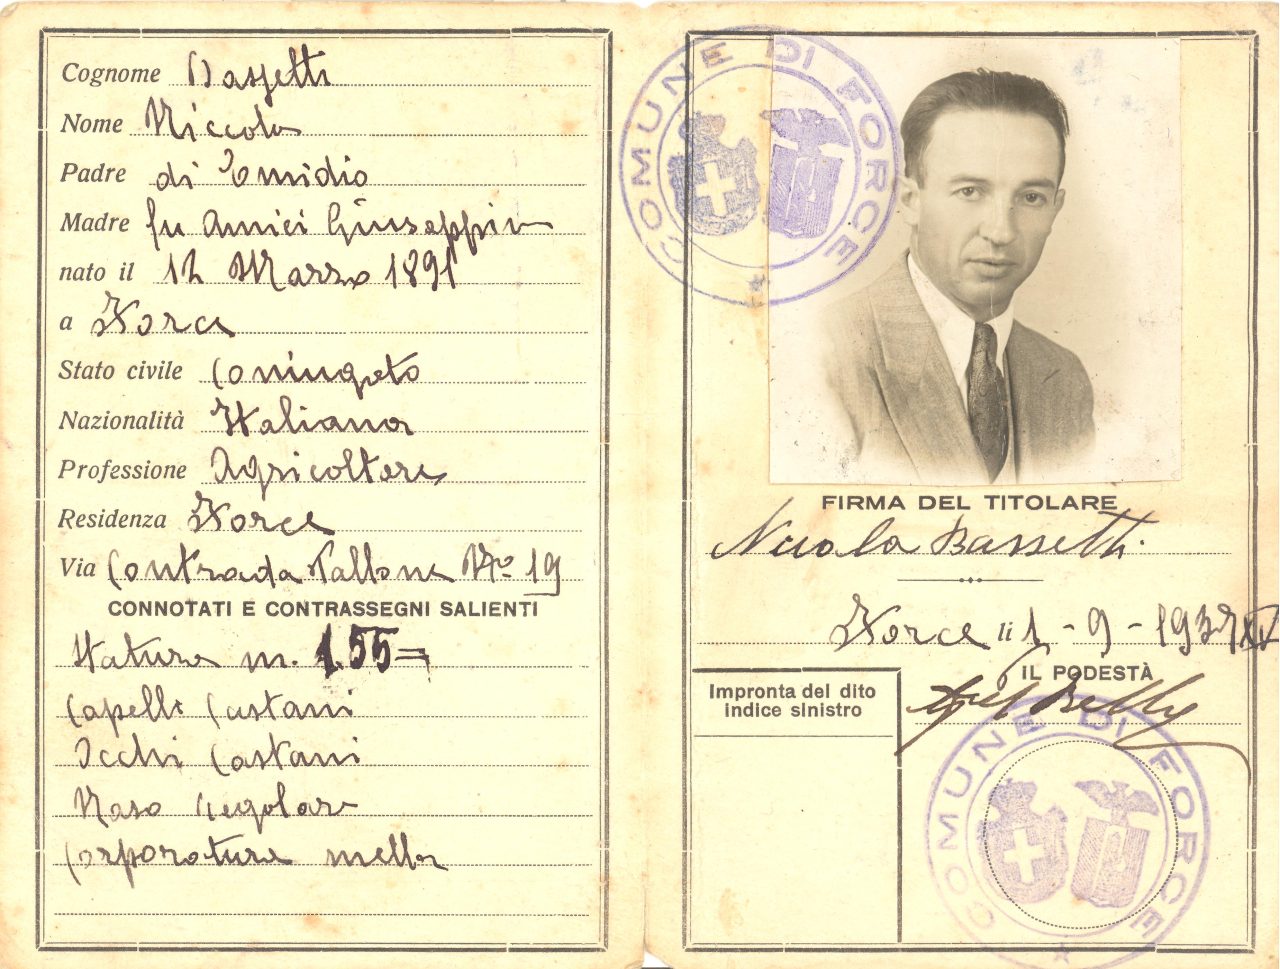 Cognome Bassetti
Nome Niccola
Padre di Emidio
Madre fu Amici Giuseppina
nato il 12 Marzo 1891
a Force
Stato civile Coniugato
Nazionalità Italiana
Professione Agricoltore
Residenza Force
Via Contrada Vallone No 19
CONNOTATI E CONTRASSEGNI SALIENTI
Statura m. 1.55
Capelli Castani
Occhi Castani
Naso regolare
Corporatura
COMUNE DI FORCE
FIRMA DEL TITOLARE
Nicola Bassetti
Force li 1 - 9 - 1937 XV
IL PODESTÀ
Impronta del dito
indice sinistro
COMUNE DI FORCE